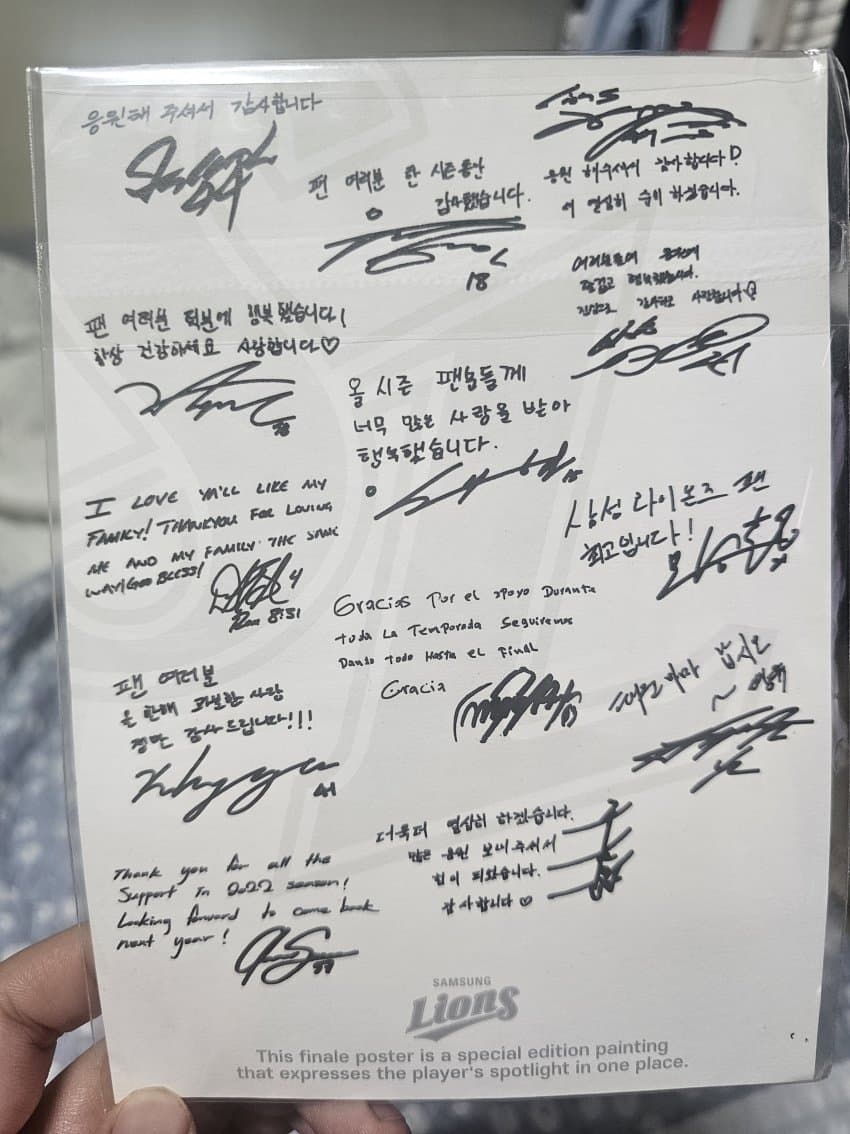 응원해 주셔서 감사합니다
44
팬 여러분 한 시즌동안
감사했습니다.
18
응원 해주셔서 감사합니다!
더 열심히
여러분들의 응원에
즐겁고 행복했습니다.
진심으로 감사하고 사랑합니다♡
팬 여러분 덕분에 행복했습니다!
항상 건강하세요 사랑합니다♡
올 시즌 팬분들께
너무 많은 사랑을 받아
행복했습니다.
I LOVE YA'LL LIKE MY
FAMILY! THANKYOU FOR LOVING
ME AND MY FAMILY THE SAME
WAY! GOD BLESS!
4
Rom 8:31
삼성 라이온즈 팬
최고입니다!
Gracias Por el apoyo Durante
toda La Temporada Seguiremos
Dando todo Hasta el Final
Gracia
팬 여러분
올 한해 과분한 사랑
정말 감사드립니다!!!
41
더욱더 열심히 하겠습니다.
많은 응원 보내주셔서
힘이 되었습니다.
감사합니다♡
Thank you for all the
Support In 2022 season!
Looking forward to come back
next year!
SAMSUNG
Lions
This finale poster is a special edition painting
that expresses the player's spotlight in one place.